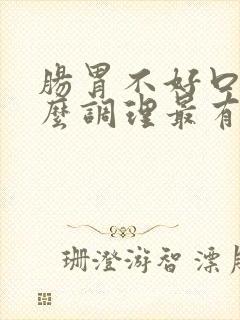 腸胃不好口
麼調理最有
珊澄游智漂